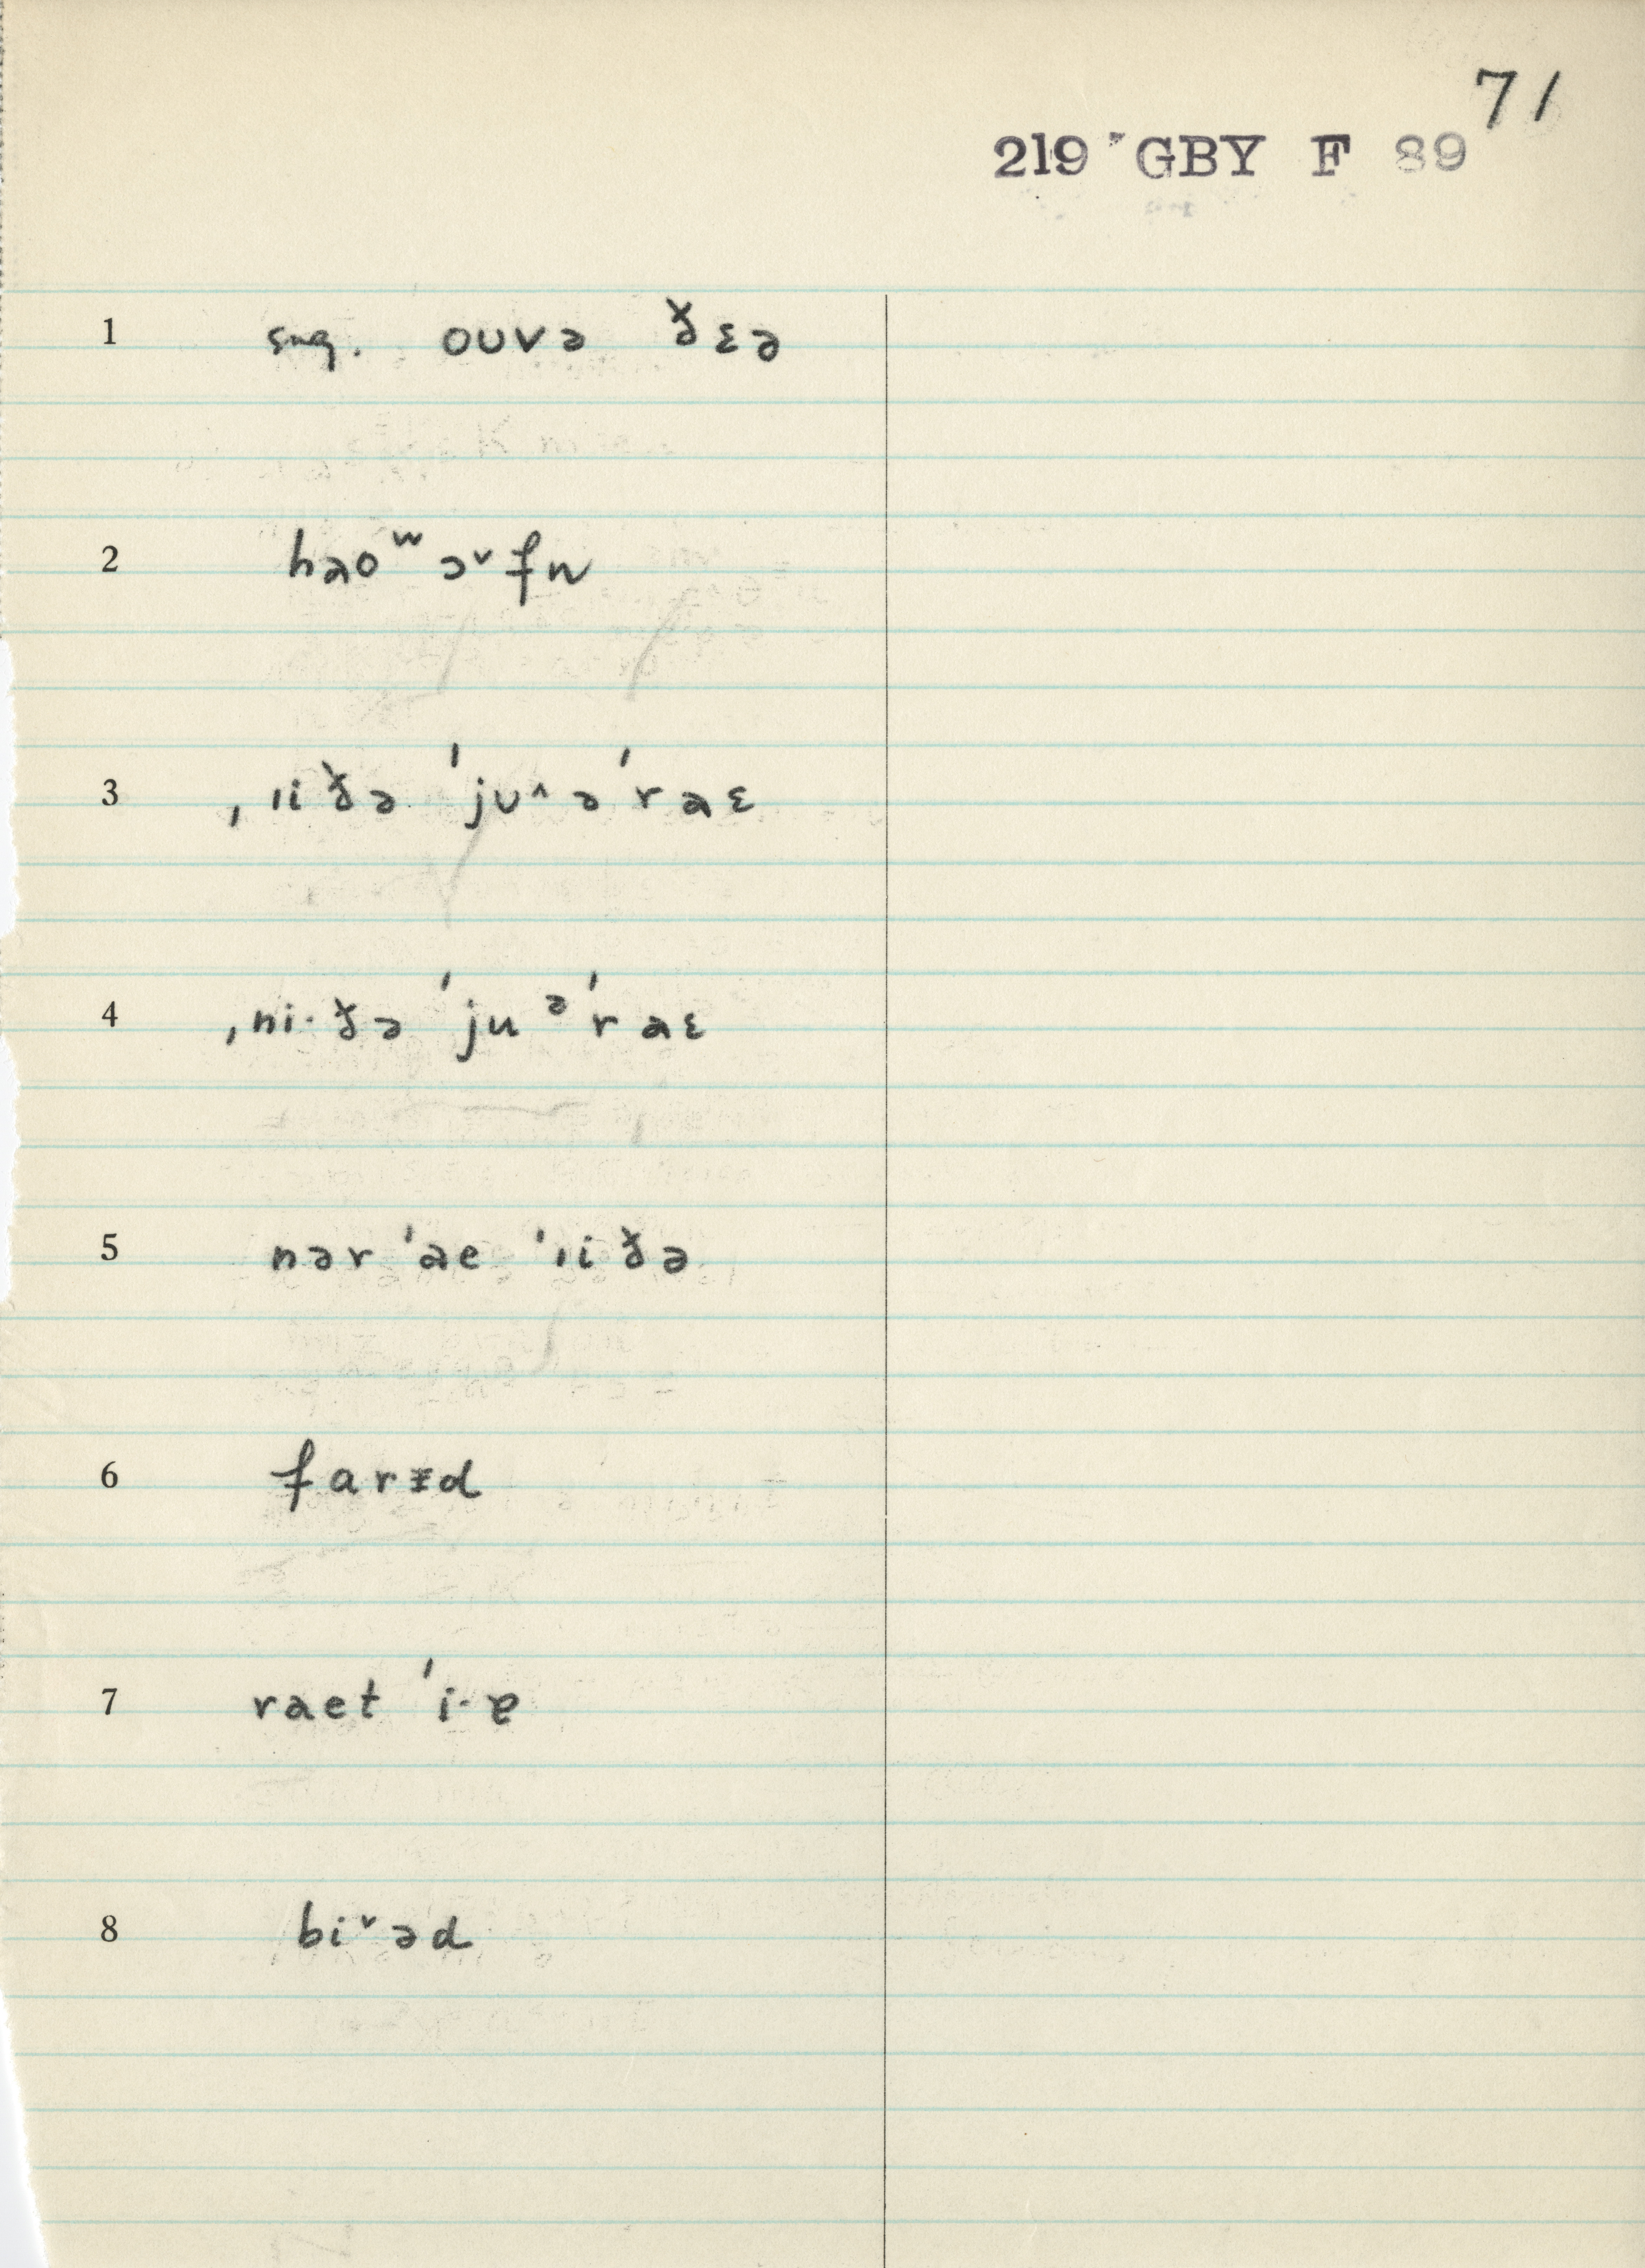 71
219 GBY F 89
1 sug. oʊvə ðɛə
2 həoʷ ɔ˅fn
3 ˌıi ðə ˈjʊ^əˈrəɛ
4 ˌni· ðə ˈjuᵊˈr əɛ
5 nər ˈəe ˈıi ðə
6 farɪd
7 raet ˈi·ɐ
8 bi˅əd